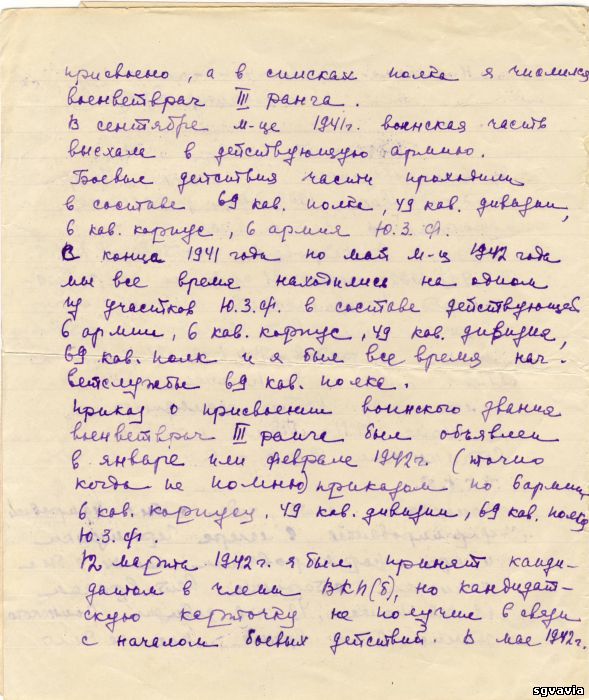 присвоено, а в списках полка я числился
военветврач III ранга.
В сентябре м-це 1941г. воинская часть
выехала в действующую армию.
Боевые действия части проходили
в составе 69 кав. полка, 49 кав. дивизии,
6 кав. корпус, 6 армия Ю.З.Ф.
С конца 1941 года по май м-ц 1942 года
мы все время находились на одном
из участков Ю.З.Ф. в составе действующей
6 армии, 6 кав. корпус, 49 кав. дивизия,
69 кав. полк и я был все время нач.
ветслужбы 69 кав. полка.
Приказ о присвоении воинского звания
военветврач III ранга был объявлен
в январе или феврале 1942г. (точно
когда не помню) приказом по 6 армии
6 кав. корпусу, 49 кав. дивизии, 69 кав. полку
Ю.З.Ф.
12 марта 1942г. я был принят канди-
датом в члены ВКП(б), но кандидат-
скую карточку не получил в связи
с началом боевых действий. В мае 1942г.
sgvavia